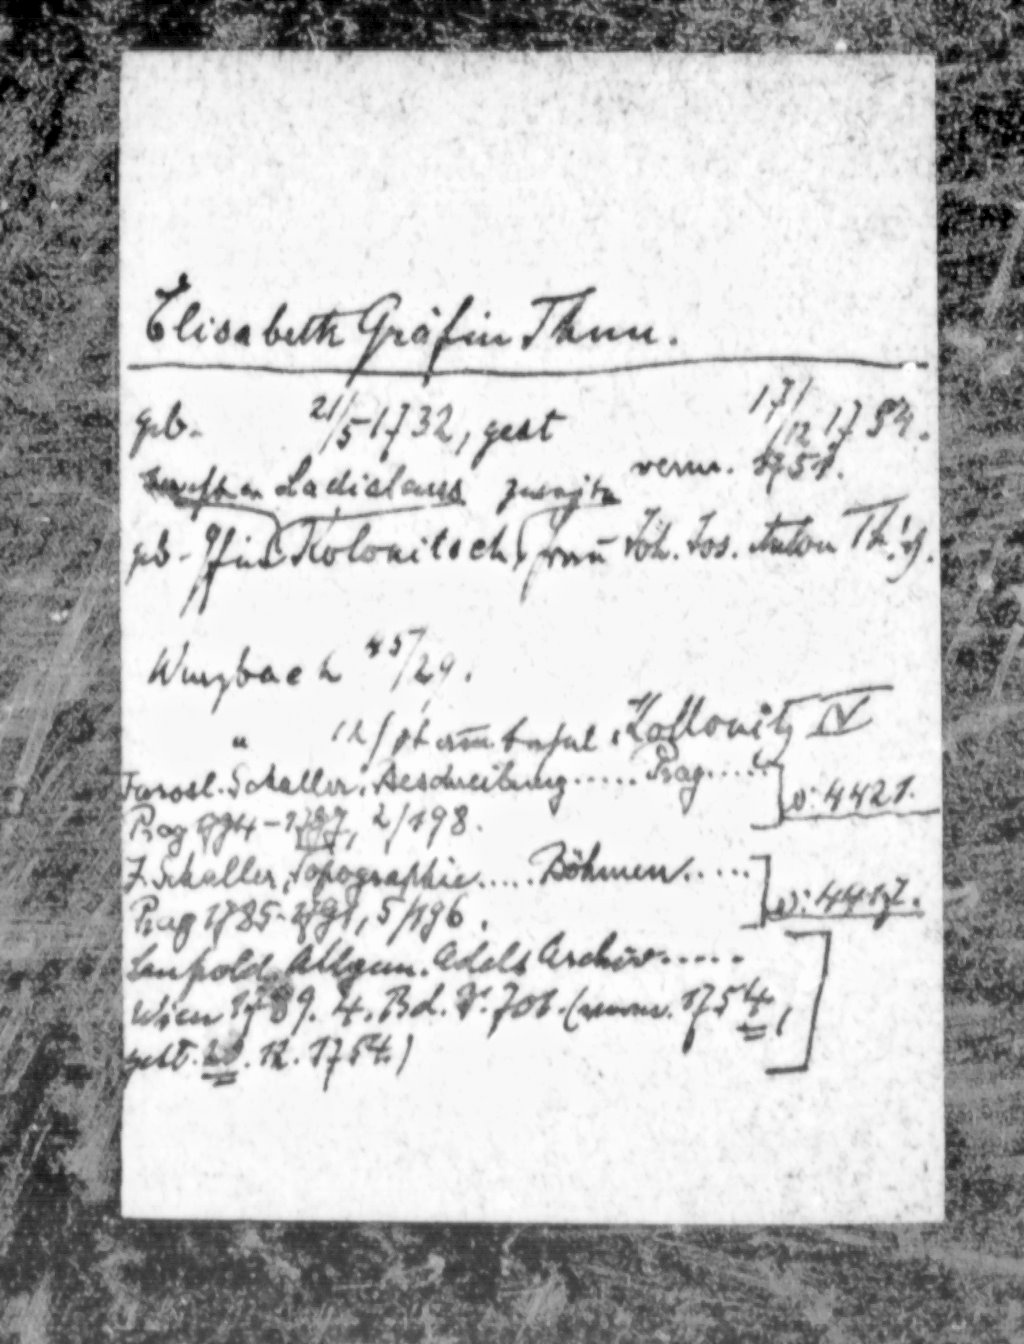 Elisabeth Gräfin Thun.
geb. 21/5 1732, gest 17/12 1754.
Ladislaus verm. 1751.
geb. Gfin Kolonitsch, Frau Joh. Jos. Anton Th.
Wurzbach 45/29.
" 12/ Kollonitz IV
Jarosl. Schaller, Beschreibung ..... Prag ..... v: 4421.
Prag 1794-1797, 2/198.
J. Schaller, Topographie .... Böhmen ..... v: 4417.
Prag 1785-1791, 5/196.
Leupold Allgem. Adels Archiv .....
Wien 1789. 4. Bd. S. 706. (verm. 1754,
gest. 12. 1754)